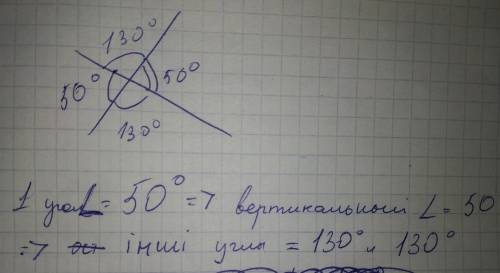 130°
50° 50°
130°
1 угол = 50° => вертикальный L = 50
=> інші углы = 130° и 130°